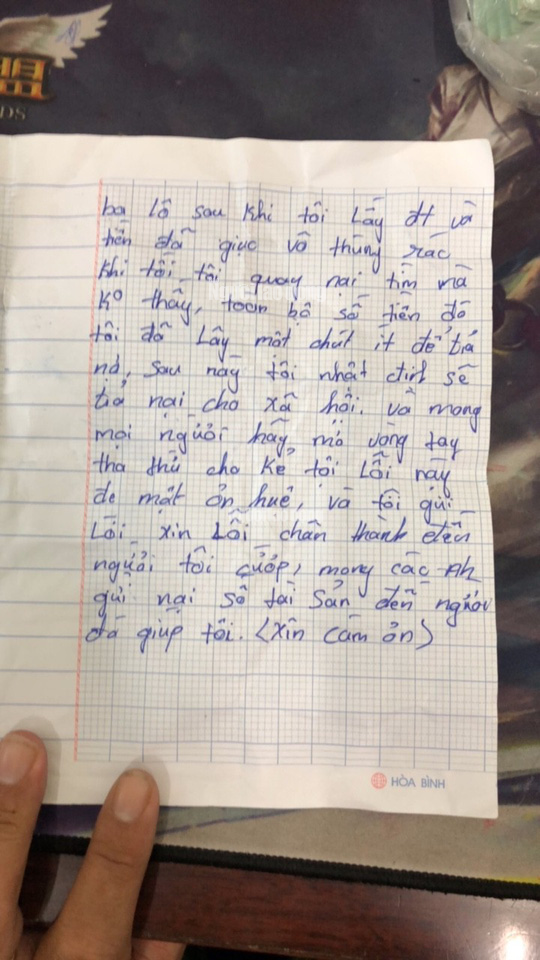 DS
ba lô sau khi tôi Lấy đt và
tiền đã giục vô thùng rác
khi tôi tôi quay nai tìm mà
ko thấy, toàn bộ số tiền đó
tôi đã Lấy một chút ít để tiả
nợ, sau này tôi nhất định sẽ
tiả nai cho xã hội. và mong
mọi người hãy mở vòng tay
tha thứ cho kẻ tội Lỗi này
đe một ơn huệ, và tôi gửi
Lời xin Lỗi chân thành đến
người tôi cướp, mong các Ah
gửi nại số tài sản đến người
đó giúp tôi. (xin cảm ơn)
HÒA BÌNH